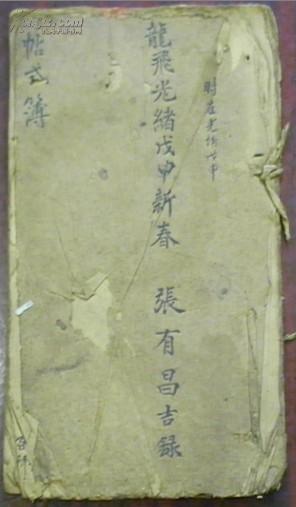 時在光緒戊申
龍飛光緒戊申新春 張有昌吉錄
帖式簿